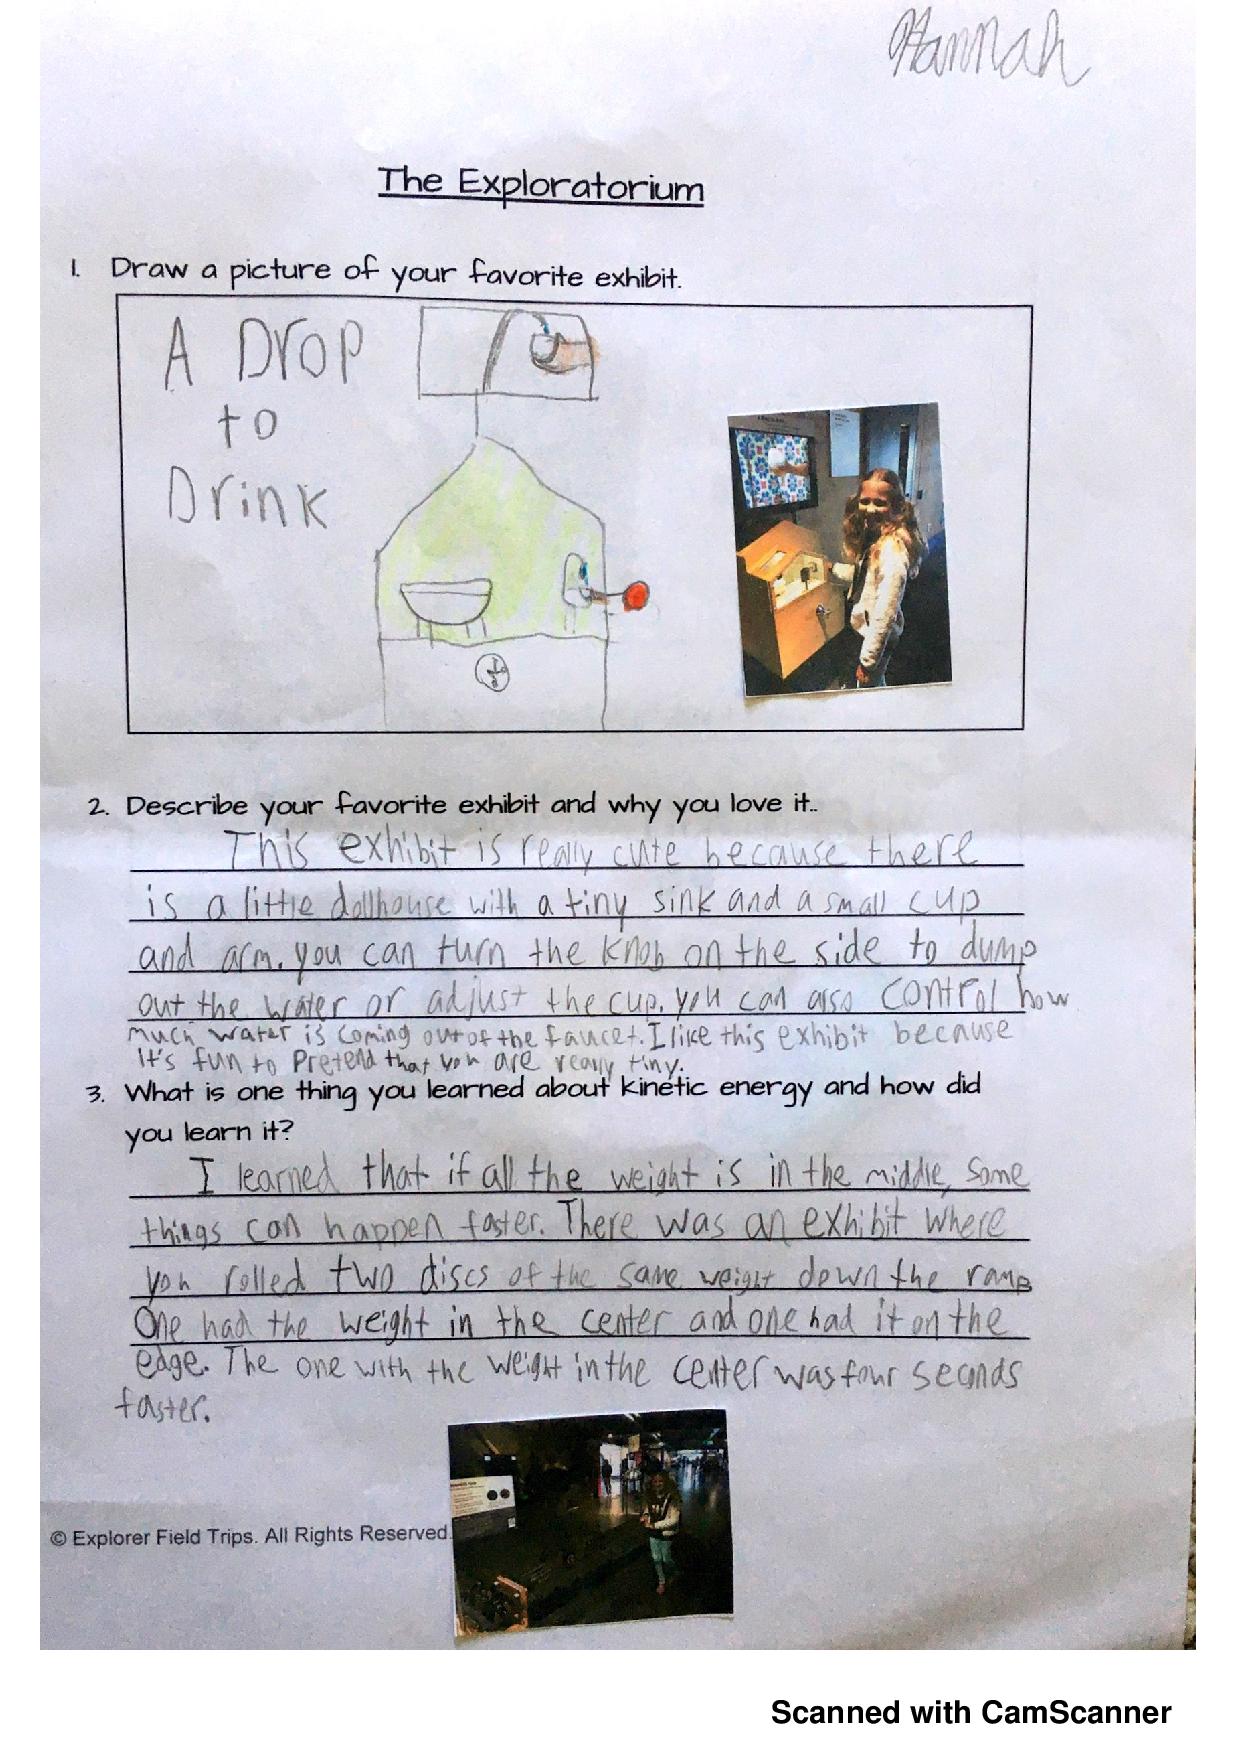 Hannah
The Exploratorium
1. Draw a picture of your favorite exhibit.
A Drop
to
Drink
2. Describe your favorite exhibit and why you love it..
This exhibit is really cute because there
is a little dollhouse with a tiny sink and a small cup
and arm. you can turn the knob on the side to dump
out the water or adjust the cup. you can also control how
much water is coming out of the faucet. I like this exhibit because
it's fun to Pretend that you are really tiny.
3. What is one thing you learned about kinetic energy and how did
you learn it?
I learned that if all the weight is in the middle, some
things can happen faster. There was an exhibit where
you rolled two discs of the same weight down the ramp
One had the weight in the center and one had it on the
edge. The one with the weight in the center was four seconds
faster.
© Explorer Field Trips. All Rights Reserved.
Scanned with CamScanner